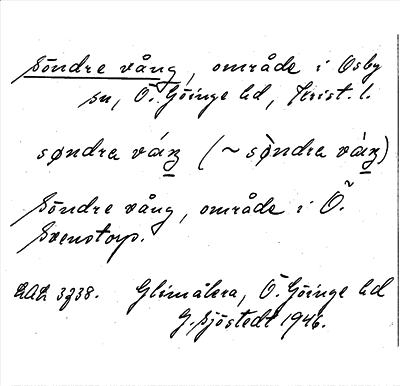 Söndre vång, område i Osby
sn, Ö. Göinge hd, Krist. l.
søndra váŋ (~ sòndra váŋ)
Söndre vång, område i Ö.
Svenstorp.
LAL 3738. Glimåkra, Ö. Göinge hd
G. Sjöstedt 1946.